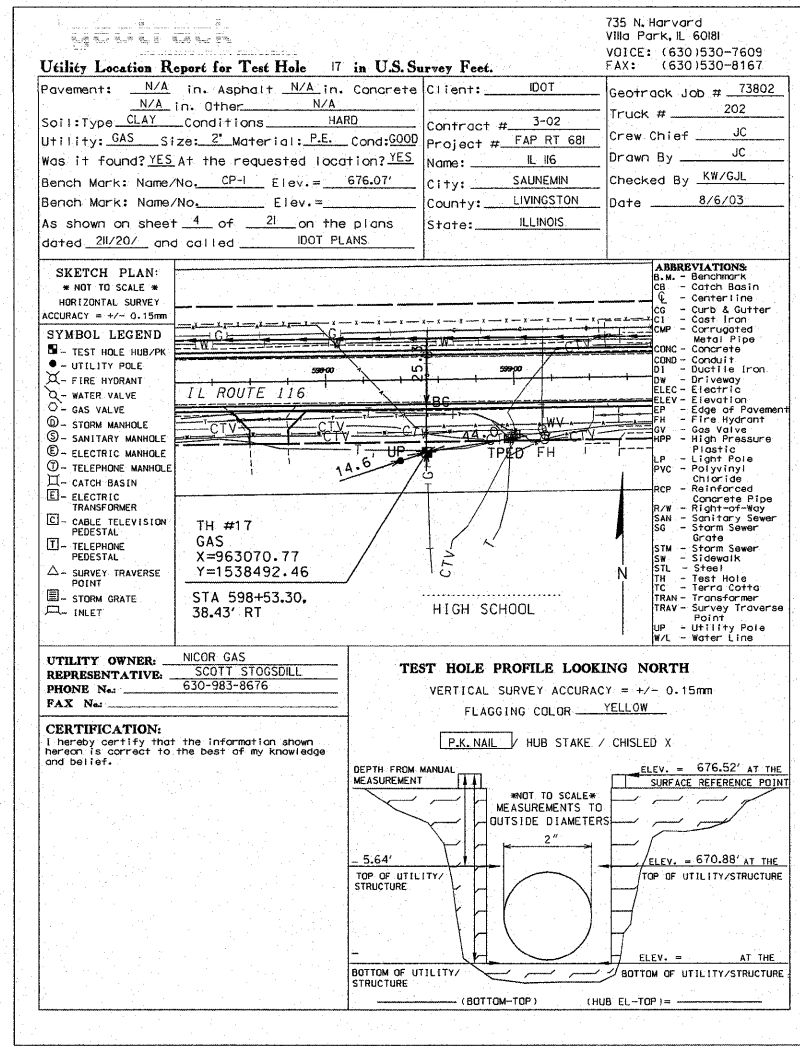 geotrack
735 N. Harvard
Villa Park, IL 60181
VOICE: (630)530-7609
FAX: (630)530-8167
Utility Location Report for Test Hole 17 in U.S. Survey Feet.
Pavement: N/A in. Asphalt N/A in. Concrete
N/A in. Other N/A
Soil:Type CLAY Conditions HARD
Utility: GAS Size: 2" Material: P.E. Cond: GOOD
Was it found? YES At the requested location? YES
Bench Mark: Name/No. CP-1 Elev.= 676.07'
Bench Mark: Name/No. Elev.=
As shown on sheet 4 of 21 on the plans
dated 211/20/ and called IDOT PLANS
Client: IDOT
Contract # 3-02
Project # FAP RT 681
Name: IL 116
City: SAUNEMIN
County: LIVINGSTON
State: ILLINOIS
Geotrack Job # 73802
Truck # 202
Crew Chief JC
Drawn By JC
Checked By KW/GJL
Date 8/6/03
SKETCH PLAN:
* NOT TO SCALE *
HORIZONTAL SURVEY
ACCURACY = +/- 0.15mm
SYMBOL LEGEND
- TEST HOLE HUB/PK
- UTILITY POLE
- FIRE HYDRANT
- WATER VALVE
- GAS VALVE
D - STORM MANHOLE
S - SANITARY MANHOLE
E - ELECTRIC MANHOLE
T - TELEPHONE MANHOLE
- CATCH BASIN
E - ELECTRIC
TRANSFORMER
C - CABLE TELEVISION
PEDESTAL
T - TELEPHONE
PEDESTAL
- SURVEY TRAVERSE
POINT
- STORM GRATE
- INLET
598+00
599+00
IL ROUTE 116
BC
CTV
CTV
CTV
CTV
CTV
WV
44.0
UP
TPED
FH
14.6'
G
CTV
T
N
TH #17
GAS
X=963070.77
Y=1538492.46
STA 598+53.30,
38.43' RT
HIGH SCHOOL
ABBREVIATIONS:
B.M. - Benchmark
CB - Catch Basin
CL - Centerline
CG - Curb & Gutter
CI - Cast Iron
CMP - Corrugated
Metal Pipe
CONC - Concrete
COND - Conduit
DI - Ductile Iron
DW - Driveway
ELEC - Electric
ELEV - Elevation
EP - Edge of Pavement
FH - Fire Hydrant
GV - Gas Valve
HPP - High Pressure
Plastic
LP - Light Pole
PVC - Polyvinyl
Chloride
RCP - Reinforced
Concrete Pipe
R/W - Right-of-Way
SAN - Sanitary Sewer
SG - Storm Sewer
Grate
STM - Storm Sewer
SW - Sidewalk
STL - Steel
TH - Test Hole
TC - Terra Cotta
TRAN - Transformer
TRAV - Survey Traverse
Point
UP - Utility Pole
W/L - Water Line
UTILITY OWNER: NICOR GAS
REPRESENTATIVE: SCOTT STOGSDILL
PHONE No.: 630-983-8676
FAX No.:
CERTIFICATION:
I hereby certify that the information shown
hereon is correct to the best of my knowledge
and belief.
TEST HOLE PROFILE LOOKING NORTH
VERTICAL SURVEY ACCURACY = +/- 0.15mm
FLAGGING COLOR YELLOW
P.K. NAIL / HUB STAKE / CHISLED X
DEPTH FROM MANUAL
MEASUREMENT
ELEV. = 676.52' AT THE
SURFACE REFERENCE POINT
*NOT TO SCALE*
MEASUREMENTS TO
OUTSIDE DIAMETERS
2"
- 5.64'
TOP OF UTILITY/
STRUCTURE
ELEV. = 670.88' AT THE
TOP OF UTILITY/STRUCTURE
-
BOTTOM OF UTILITY/
STRUCTURE
ELEV. = AT THE
BOTTOM OF UTILITY/STRUCTURE
(BOTTOM-TOP) (HUB EL-TOP)=